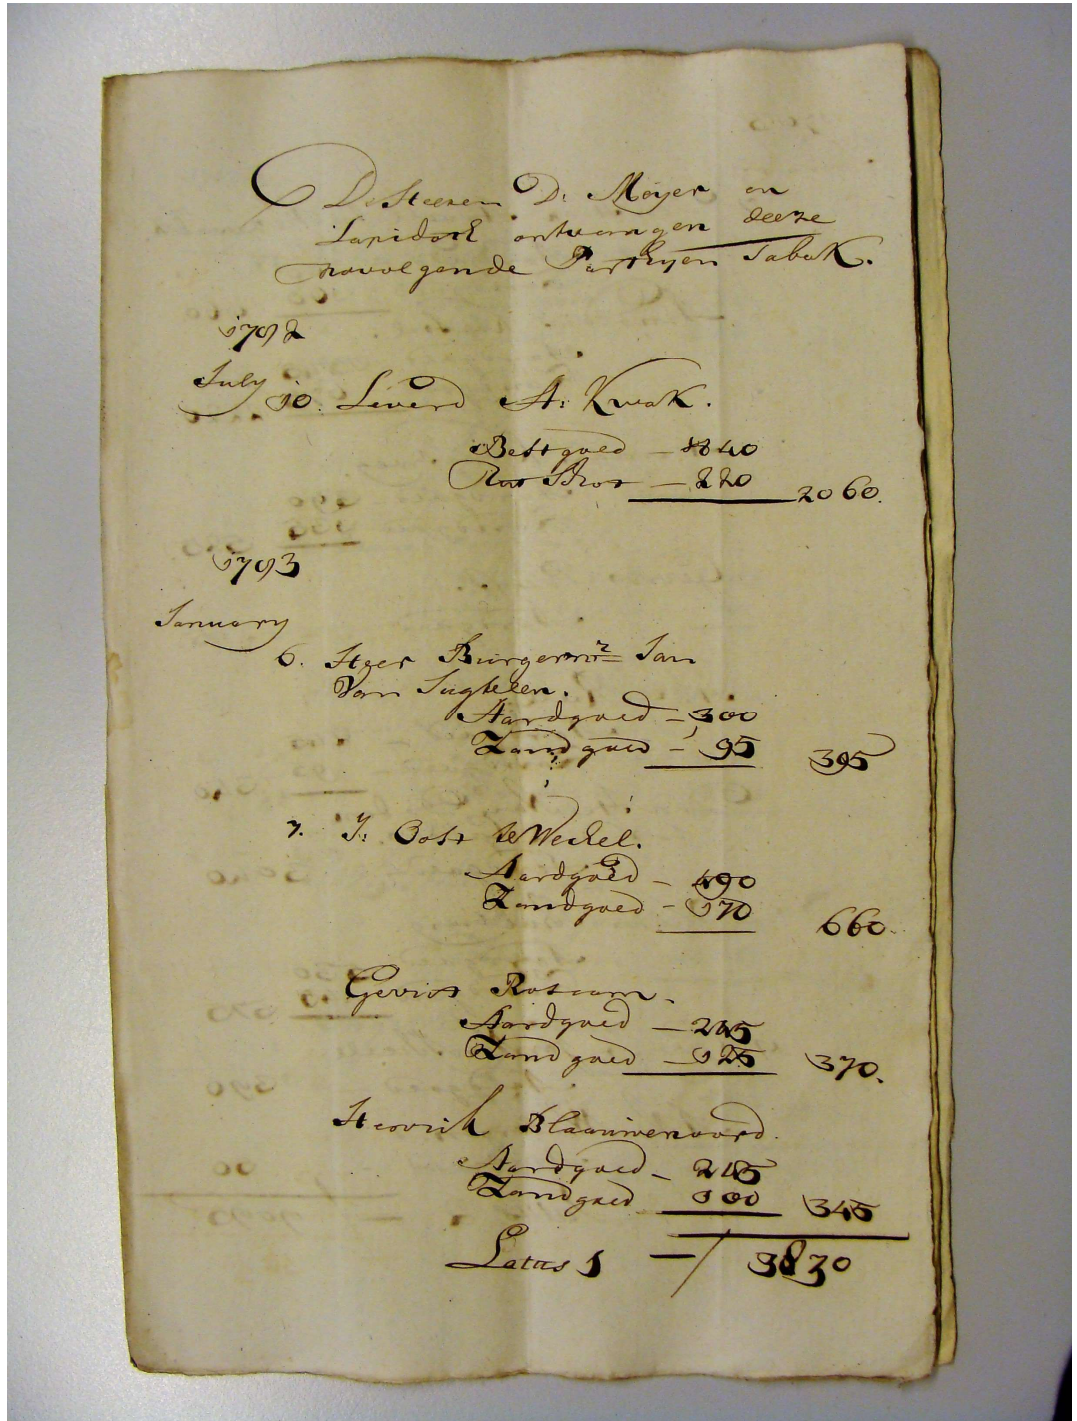 De Heeren D: Meyer en
Lapidoth ontvangen deeze
navolgende Parthyen Tabak.
1792
July 10. Leverd A: Kwak.
Bestgoed — 1840
— 220 2060.
1793
January
6. Heer Burgermr Jan
Van Lugteren.
Aardgoed — 300
Zandgoed — 95 395
7. J: Oost te Wechel.
Aardgoed — 490
Zandgoed — 170 660.
Gerrit Roscam.
Aardgoed — 245
Zandgoed — 125 370.
Hendrik Blaauwenoord.
Aardgoed — 245
Zandgoed 100 345
Latus 1 — / 3830